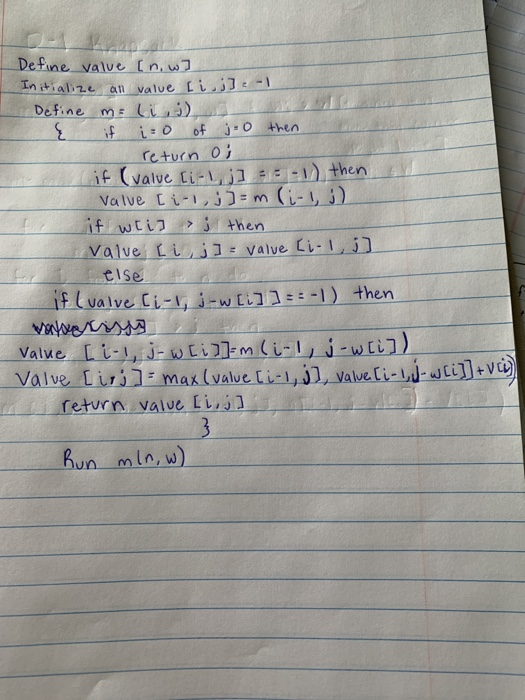 Define value [n, w]
Initialize all value [i, j] = -1
Define m = (i, j)
{ if i = 0 of j = 0 then
return 0;
if (value [i-1, j] == -1) then
value [i-1, j] = m (i-1, j)
if w[i] > j then
value [i, j] = value [i-1, j]
else
if (value [i-1, j-w[i]] == -1) then
value [i-1, j-w[i]] = m(i-1, j-w[i])
Value [i, j] = max(value [i-1, j], value [i-1, j-w[i]] + v[i])
return value [i, j]
}
Run m(n, w)